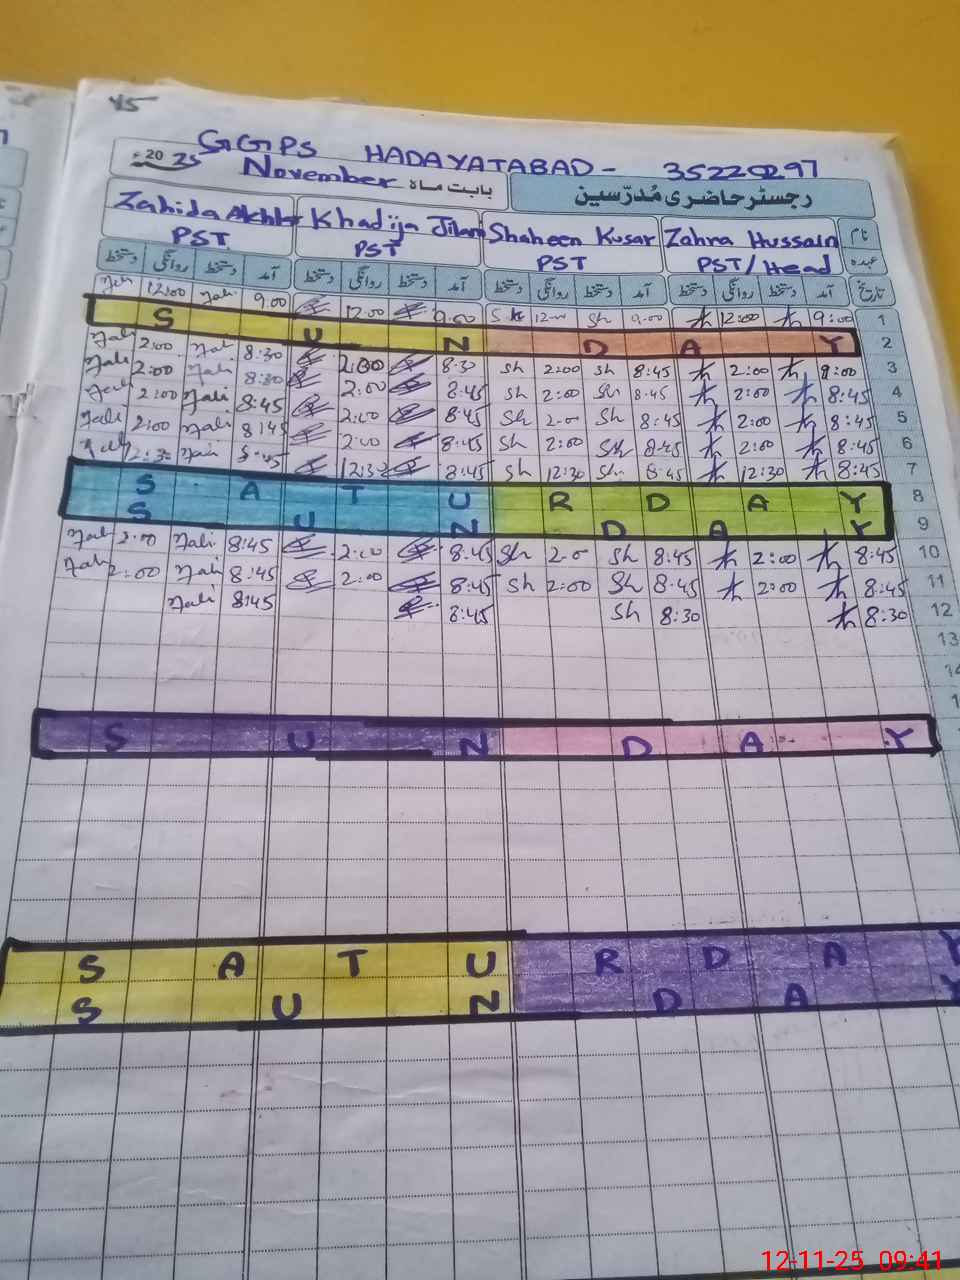 45
GGPS HADAYATABAD - 35220297
20 25 November بابت ماہ رجسٹر حاضری مُدرّسین
Zahida Akhtar Khadija Jilani Shaheen Kusar Zahra Hussain نام
PST PST PST PST/Head عہدہ
دستخط روانگی دستخط آمد دستخط روانگی دستخط آمد دستخط روانگی دستخط آمد دستخط روانگی دستخط آمد تاریخ
12:00 9.00 12.00 9.00 Sh 12-00 Sh 9.00 12:00 9:00 1
S U N D A Y 2
2:00 8:30 2:00 8:30 Sh 2:00 Sh 8:45 2:00 9:00 3
2:00 8:30 2:00 8:45 Sh 2:00 Sh 8:45 2:00 8:45 4
2:00 8:45 2:00 8:45 Sh 2-00 Sh 8:45 2:00 8:45 5
2:00 8:45 2:00 8:45 Sh 2:00 Sh 8:45 2:00 8:45 6
12:30 8:45 12:30 8:45 Sh 12:30 Sh 8:45 12:30 8:45 7
S A T U R D A Y 8
S U N D A Y 9
2:00 8:45 2:00 8:45 Sh 2-0 Sh 8:45 2:00 8:45 10
2:00 8:45 2:00 8:45 Sh 2:00 Sh 8:45 2:00 8:45 11
8:45 8:45 Sh 8:30 8:30 12
13
14
S U N D A Y
S A T U R D A Y
S U N D A Y
12-11-25 09:41